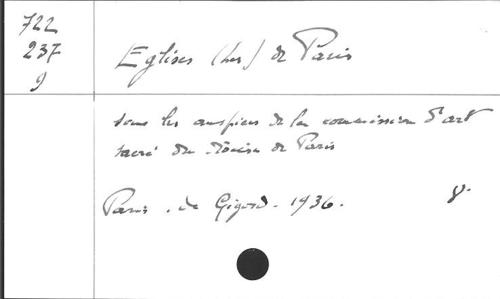 722
237
9
Eglises (Les) de Paris
sous les auspices de la commission d'art
sacré du diocèse de Paris
Paris. de Gigord. 1936. 8.